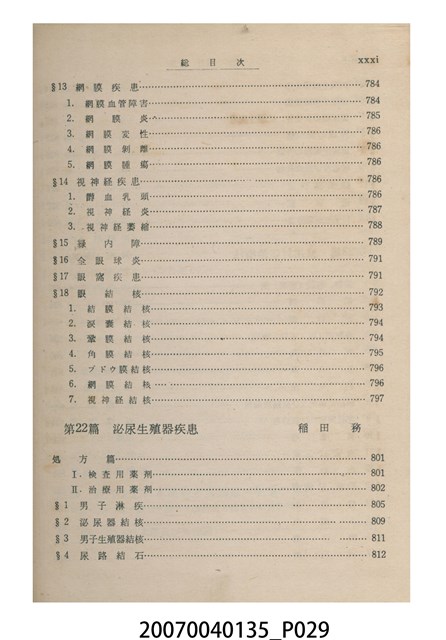 総目次 xxxi
§13 網膜疾患 784
1. 網膜血管障害 784
2. 網膜炎 785
3. 網膜変性 786
4. 網膜剝離 786
5. 網膜腫瘍 786
§14 視神経疾患 786
1. 欝血乳頭 786
2. 視神経炎 787
3. 視神経萎縮 788
§15 緑内障 789
§16 全眼球炎 791
§17 眼窩疾患 791
§18 眼結核 792
1. 結膜結核 793
2. 涙囊結核 794
3. 鞏膜結核 794
4. 角膜結核 795
5. ブドウ膜結核 796
6. 網膜結核 796
7. 視神経結核 797
第22篇 泌尿生殖器疾患 稲田務
処方篇 801
I. 検査用薬剤 801
II. 治療用薬剤 802
§1 男子淋疾 805
§2 泌尿器結核 809
§3 男子生殖器結核 811
§4 尿路結石 812
20070040135_P029